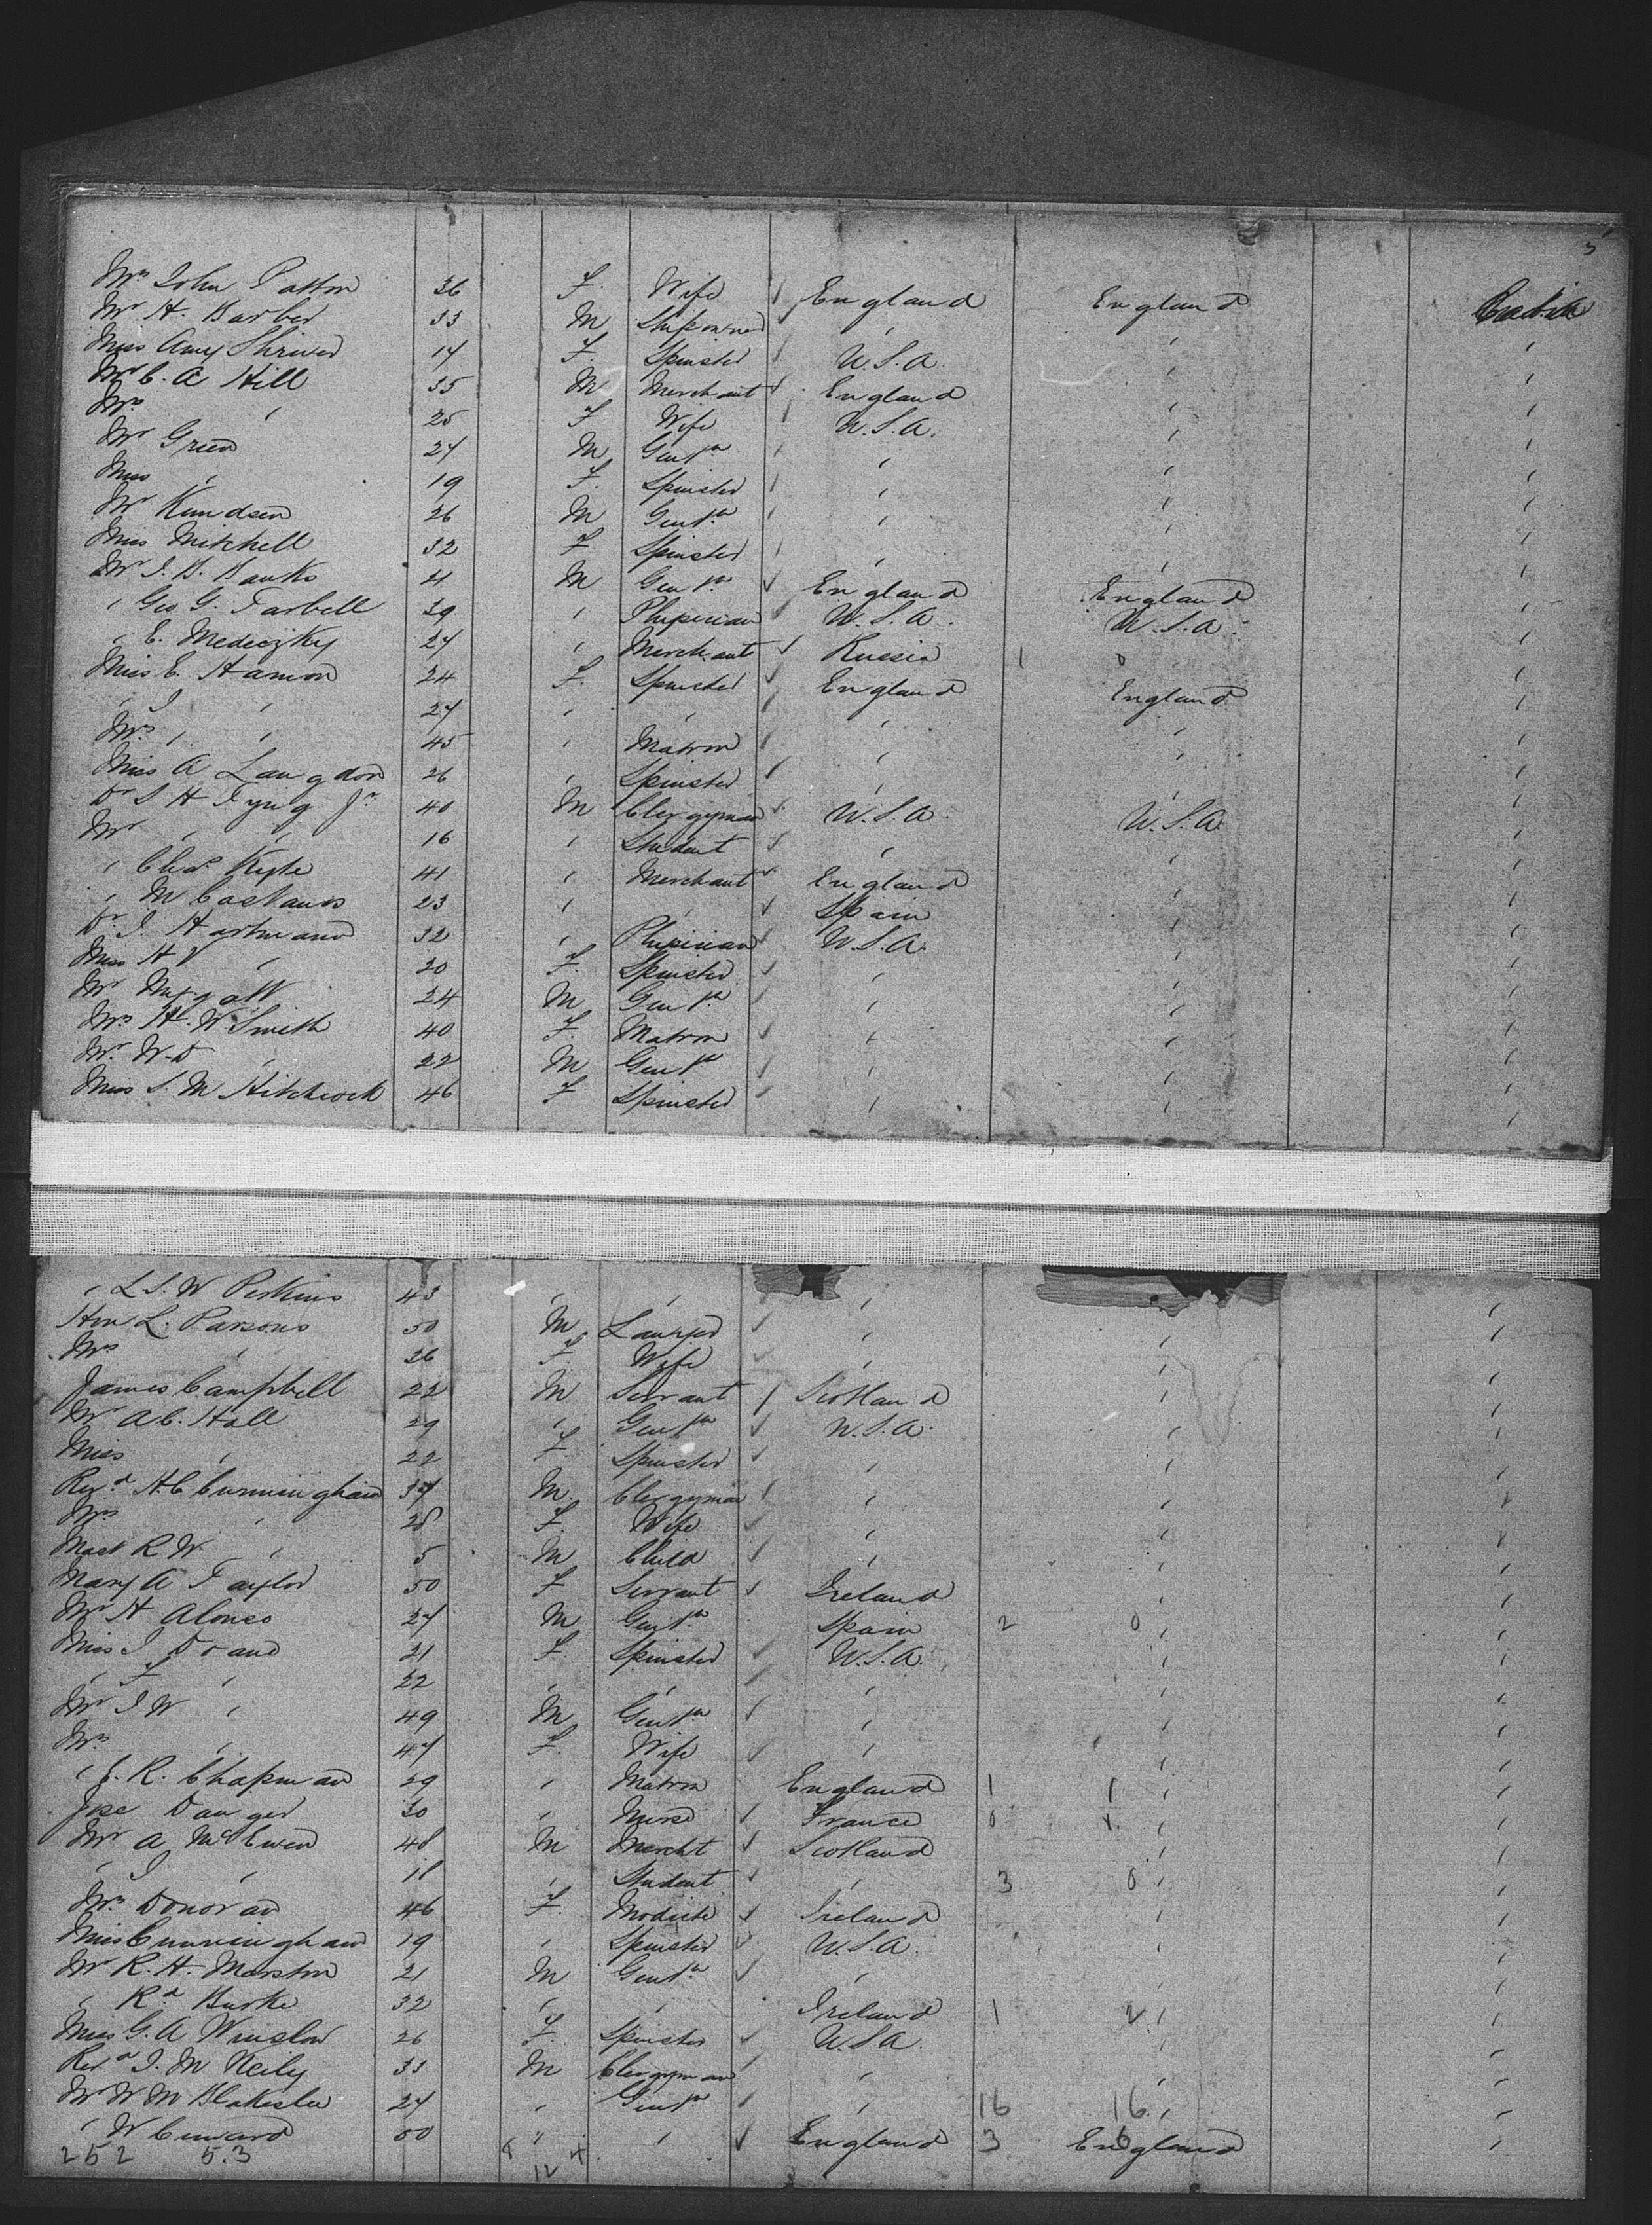 5
Mrs John Patton 36 F. Wife England England Cabin
Mr H. Barber 33 M Shipowner " " "
Miss Amy Shriver 17 F. Spinster U.S.A. " "
Mr C. A Hill 35 M Merchant England " "
Mrs " 25 F Wife U.S.A. " "
Mr Green 27 M Gentn " " "
Miss " 19 F. Spinster " " "
Mr Knudsen 26 M Gentn " " "
Miss Mitchell 32 F Spinster " " "
Mr J. B. Banks 21 M Gentn England England "
" Geo G. Tarbell 39 " Physician U.S.A. U.S.A. "
" E. 27 " Merchant Russia 1 0 " "
Miss E. Hamon 24 F. Spinster England England "
" J " 27 " " " " "
Mrs " " 45 " Matron " " "
Miss A Langdon 26 " Spinster " " "
Dr S H Tyng Jr 40 M Clergyman U.S.A. U.S.A. "
Mr " " 16 " Student " " "
" Chas 41 " Merchant England " "
" M 23 " " Spain " "
Dr. J. Hartmann 32 " Physician U.S.A. " "
Miss H V " 20 F. Spinster " " "
Mr 24 M Gentn " " "
Mrs H. W. Smith 40 F. Matron " " "
Mr. W. D " 22 M Gentn " " "
Miss S. M Hitchcock 46 F Spinster " " "
" L S. W Perkins 43 " " " "
Hon L. Parsons 50 M Lawyer " " "
Mrs " 26 F. Wife " " "
James Campbell 22 M Servant Scotland " "
Mr A C. Hall 29 " Gentn U.S.A. " "
Miss " 22 F. Spinster " " "
Revd H. C Cunningham 37 M Clergyman " " "
Mrs " 28 F. Wife " " "
Mast R W. " 5 M Child " " "
Mary A Taylor 50 F Servant Ireland " "
Mr H Alonso 27 M Gentn Spain 2 0 " "
Miss J Doane 21 F. Spinster U.S.A. " "
" F " 22 " " " " "
Mr J W " 49 M Gentn " " "
Mrs " 47 F. Wife " " "
" J. R. Chapman 29 " Matron England 1 1 " "
30 " Nurse France 0 1. " "
Mr A McEwen 48 M Mercht Scotland " "
" J " 18 " Student " 3 0 " "
Mrs Donovan 46 F. Modiste Ireland " "
Miss Cunningham 19 " Spinster U.S.A. " "
Mr R. H. Marston 21 M Gentn " " "
" Rd Burke 32 " " Ireland 1 2 " "
Miss G. A Winslow 26 F. Spinster U.S.A. " "
Revd J. M Neily 33 M Clergyman " " "
Mr W M Blakeslee 27 " Gentn " 16 16 " "
" W Cunard 50 " " England 3 6 England "
252 53 12